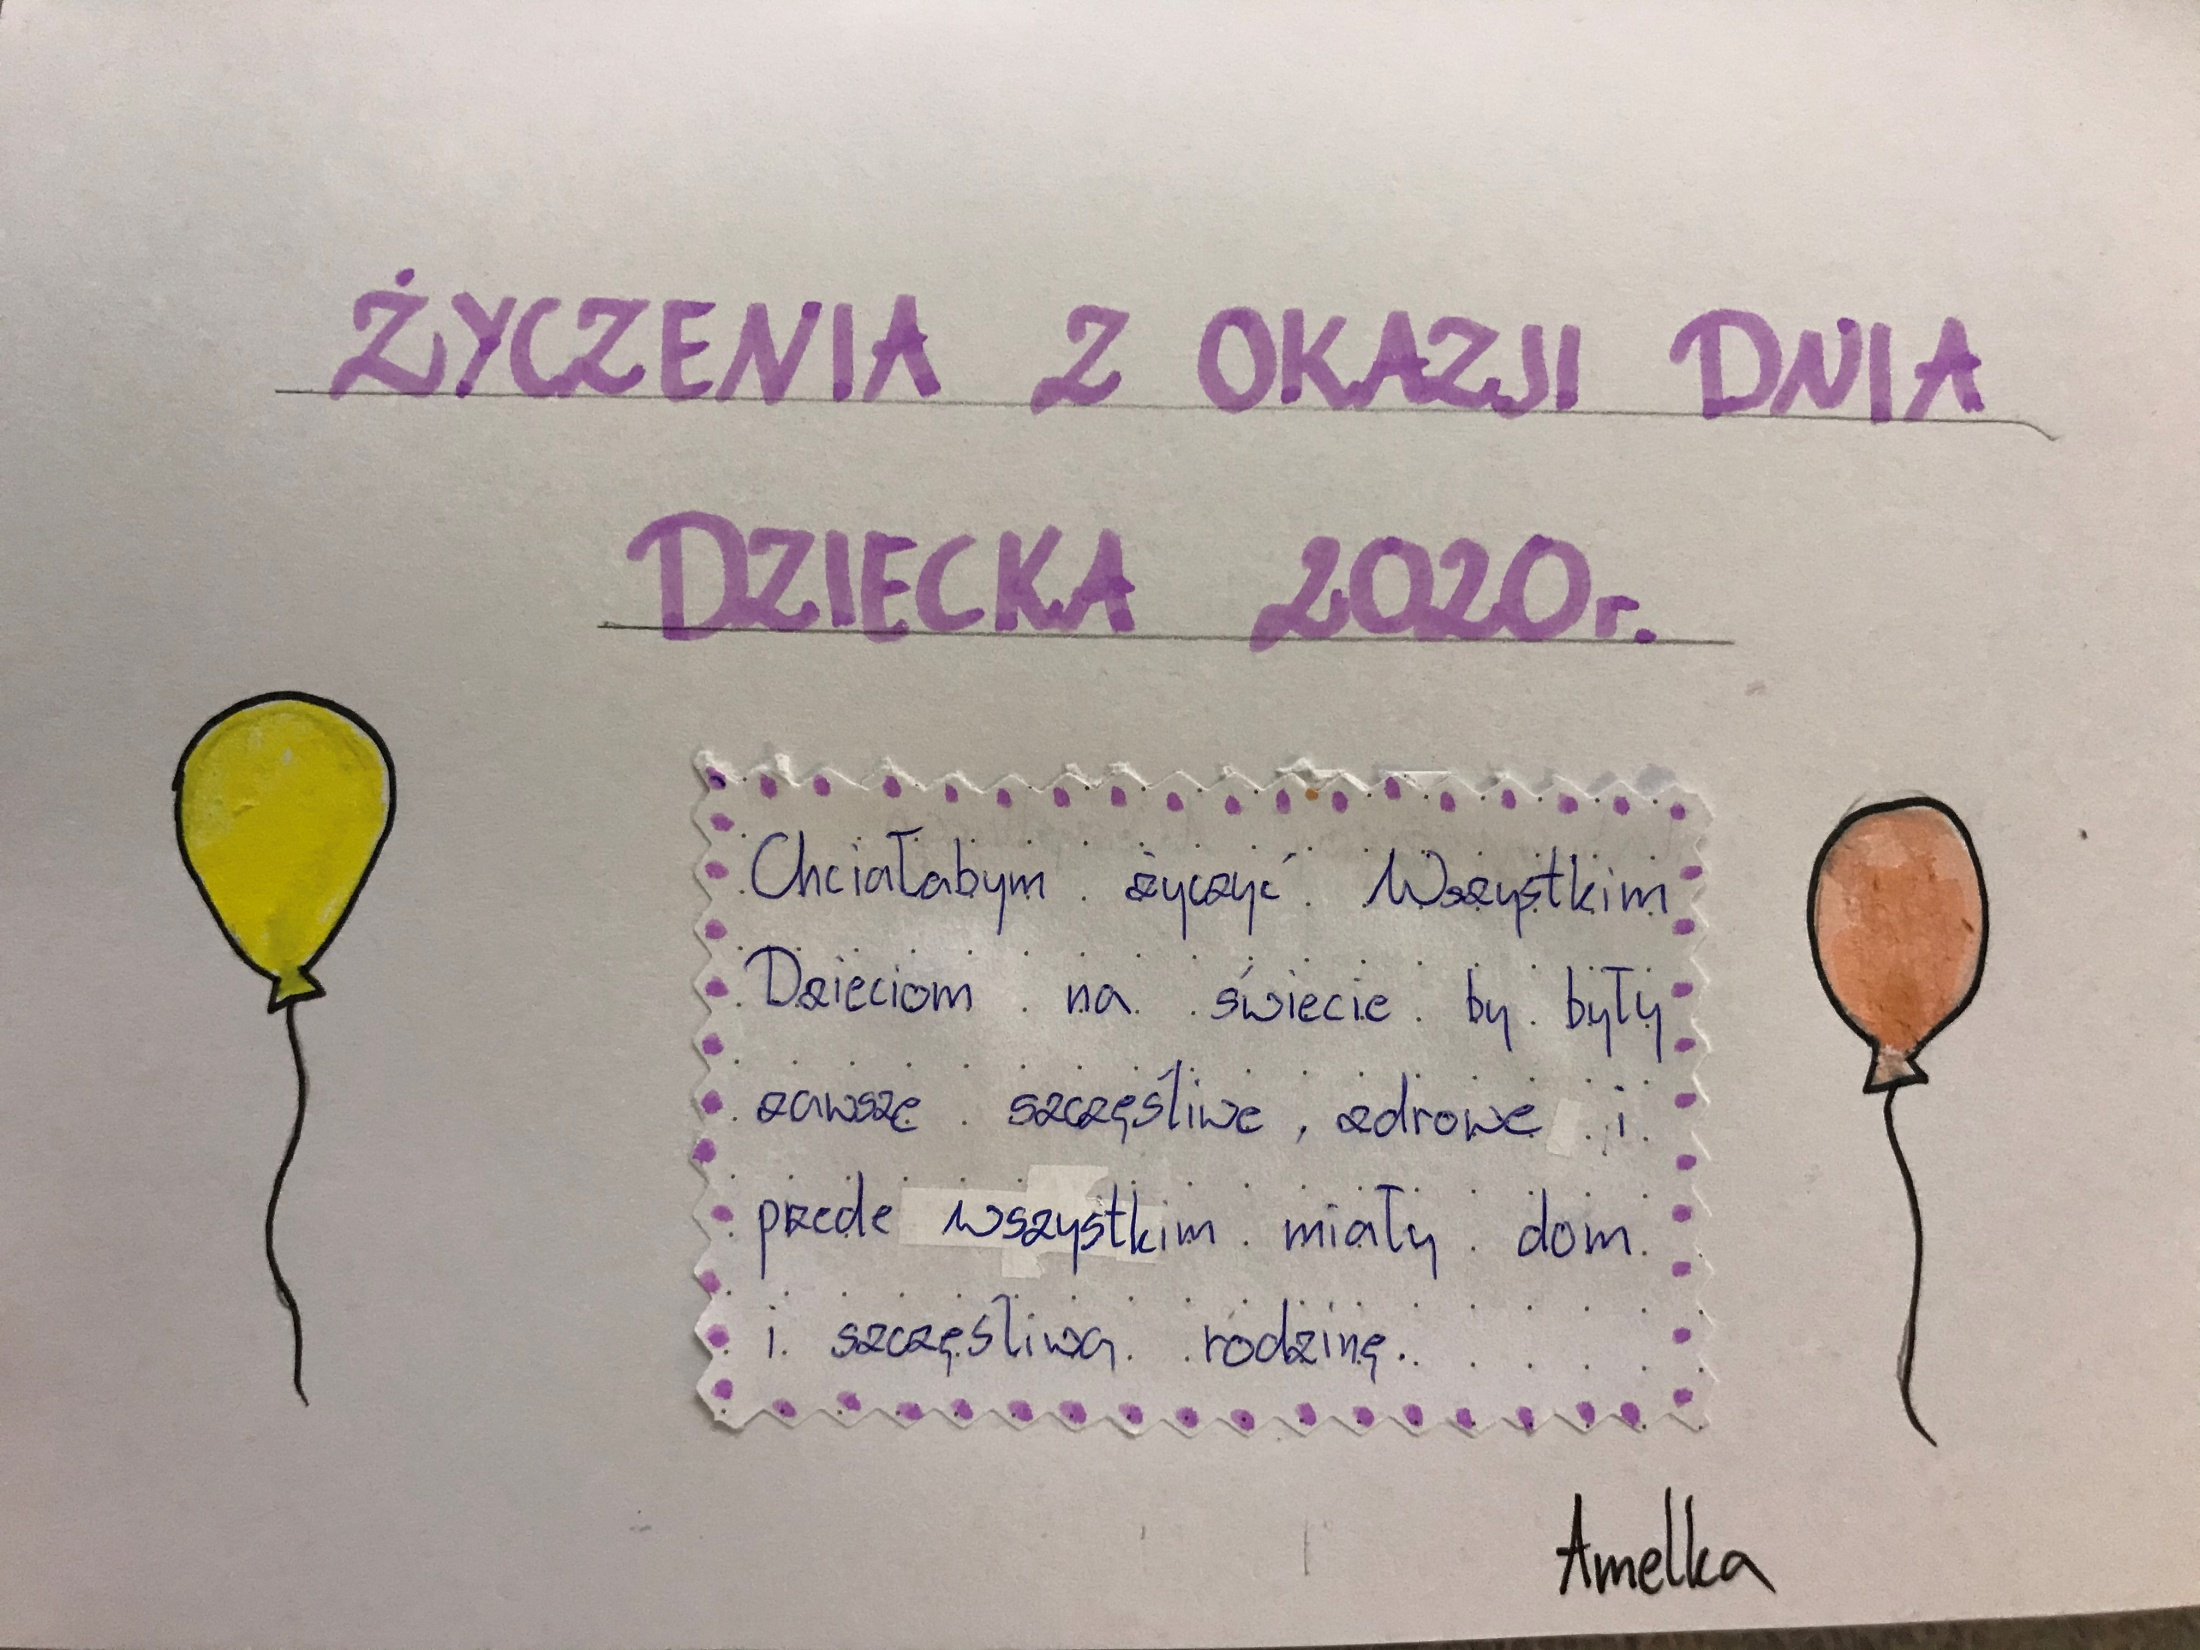 ŻYCZENIA Z OKAZJI DNIA
DZIECKA 2020r.
Chciałabym życzyć Wszystkim
Dzieciom na świecie by były
zawsze szczęśliwe, zdrowe i
przede wszystkim miały dom
i szczęśliwą rodzinę.
Amelka